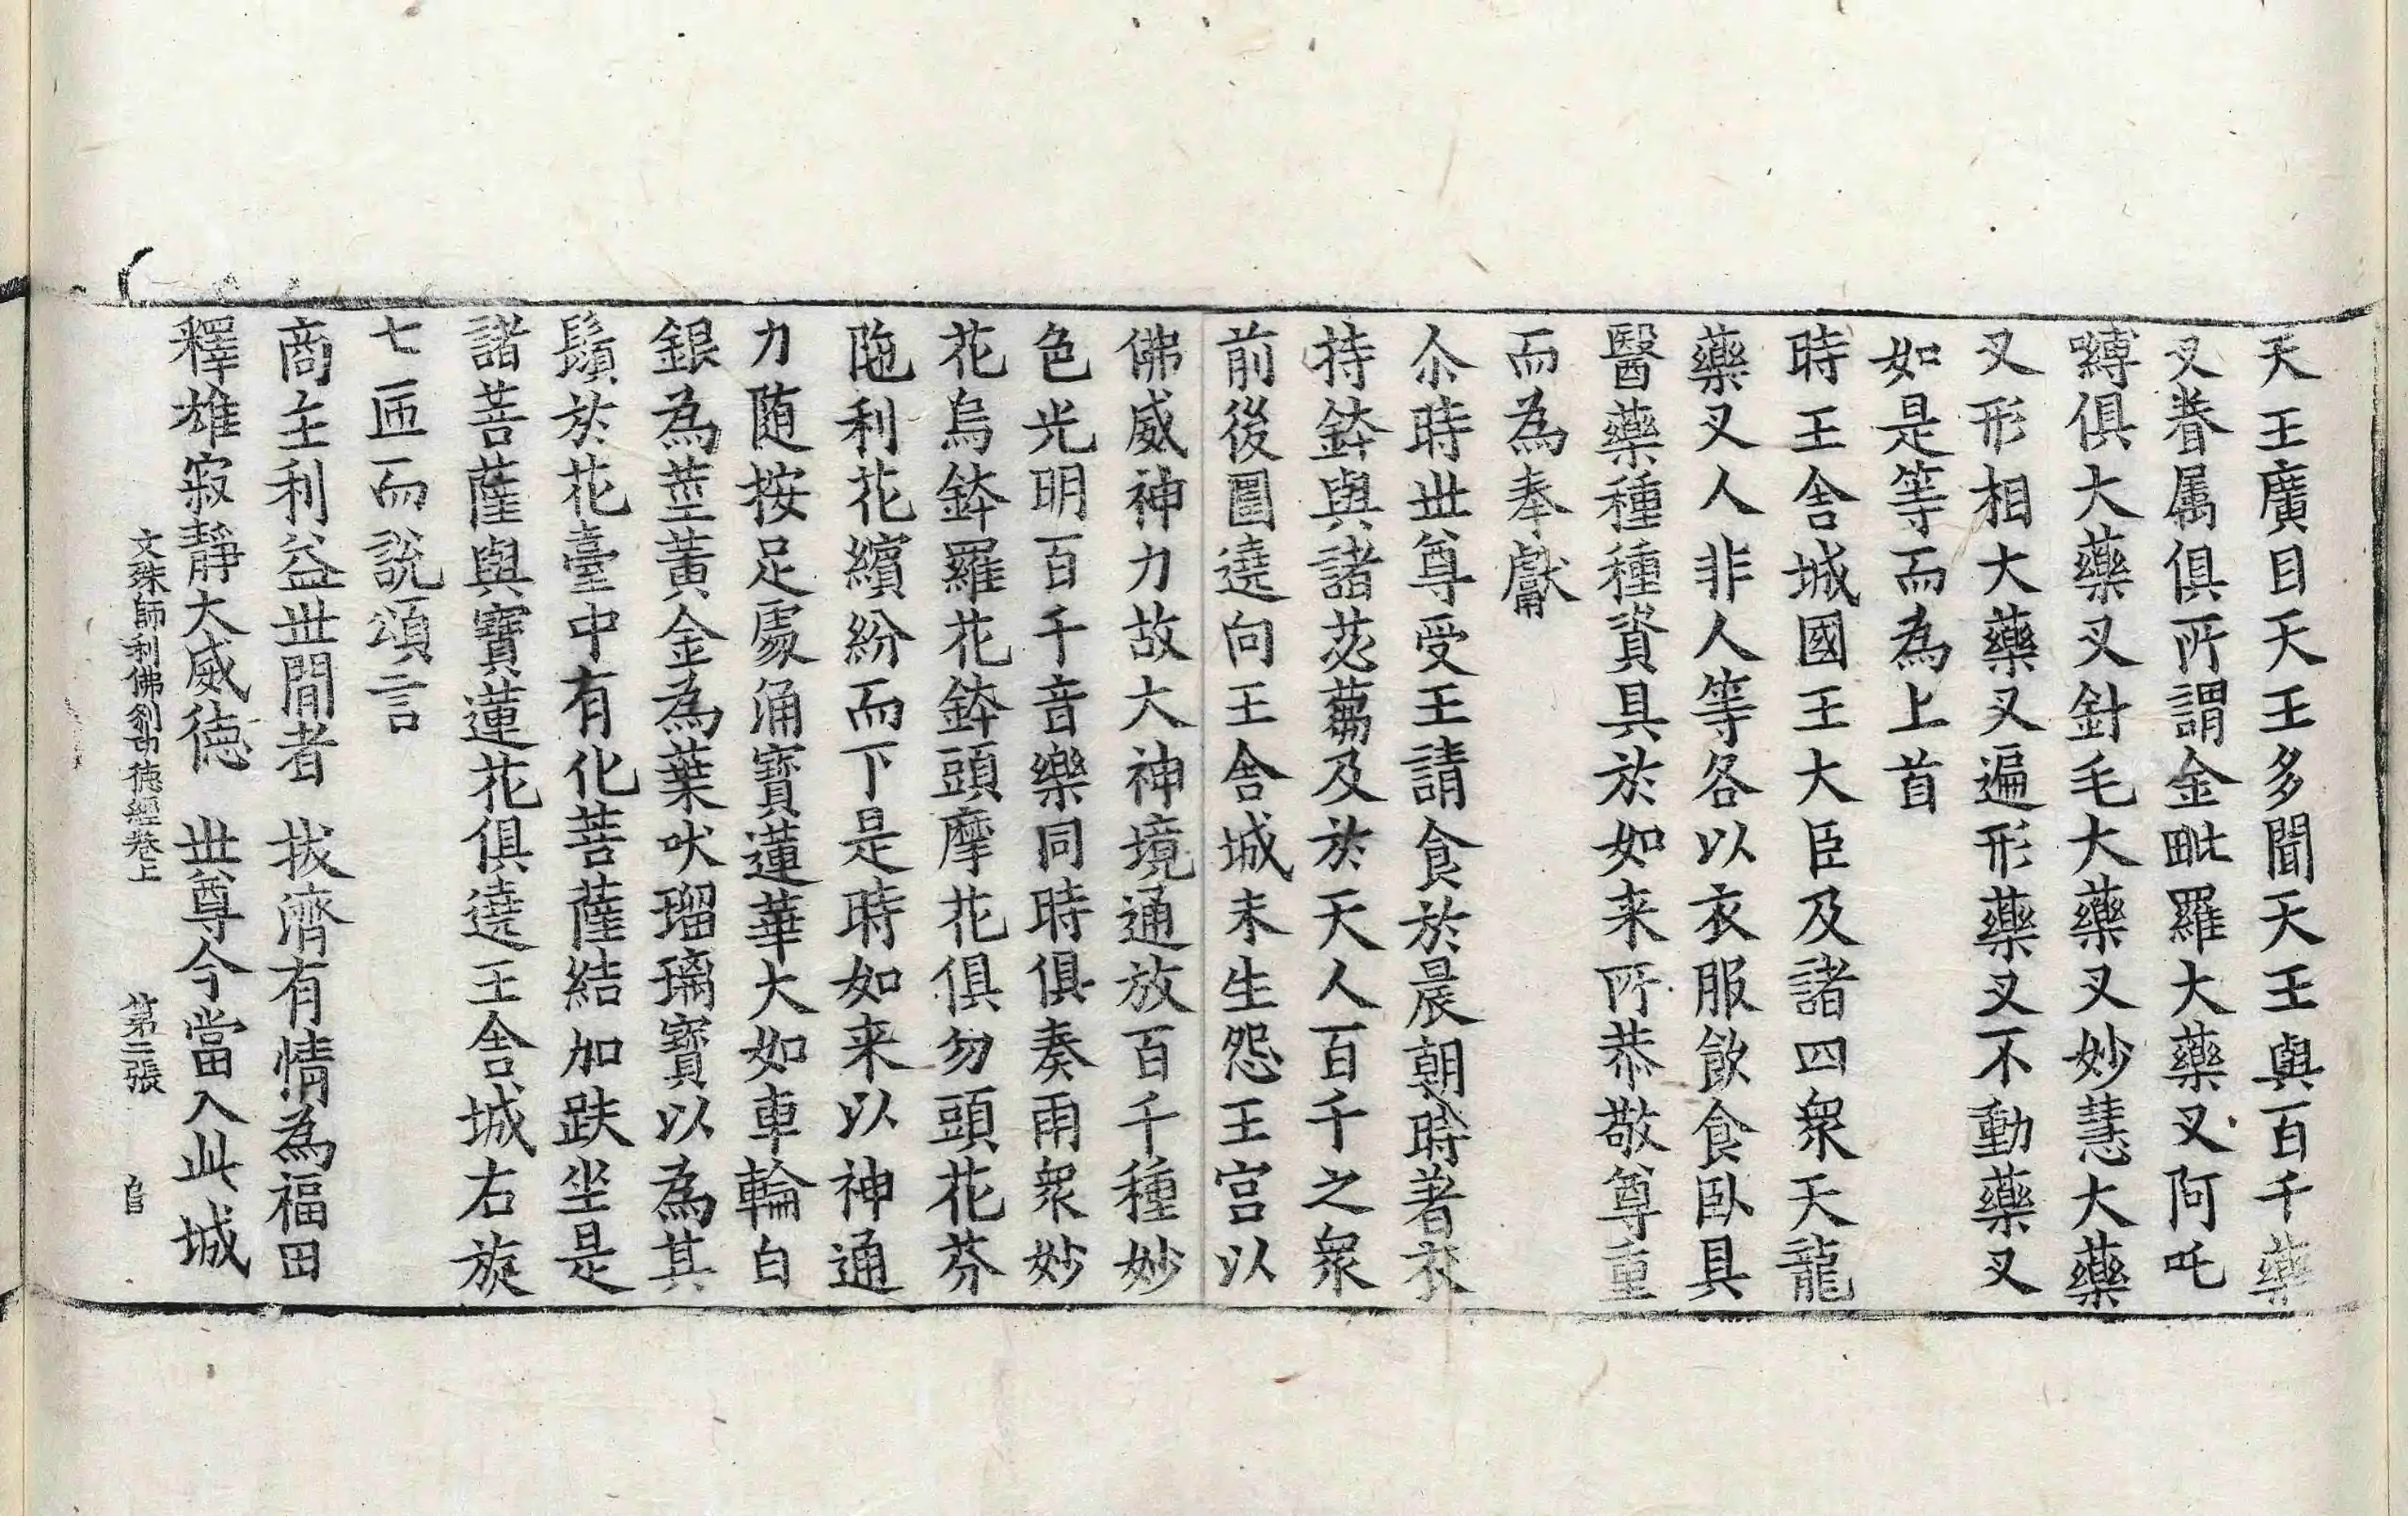 天王廣目天王多聞天王與百千藥
叉眷属俱所謂金毗羅大藥叉阿吒
嚩俱大藥叉針毛大藥叉妙慧大藥
叉形相大藥叉遍形藥叉不動藥叉
如是等而為上首
時王舍城國王大臣及諸四衆天龍
藥叉人非人等各以衣服飲食臥具
醫藥種種資具於如来所恭敬尊重
而為奉獻
尒時世尊受王請食於晨朝時著衣
持鉢與諸苾蒭及於天人百千之衆
前後圍遶向王舍城未生怨王宫以
佛威神力故大神境通放百千種妙
色光明百千音樂同時俱奏雨衆妙
花烏鉢羅花鉢頭摩花俱勿頭花芬
陁利花繽紛而下是時如来以神通
力随按足處涌寶蓮華大如車輪白
銀為莖黃金為葉吠瑠璃寶以為其
鬚於花臺中有化菩薩結加趺坐是
諸菩薩與寶蓮花俱遶王舍城右旋
七匝而說頌言
商主利益世間者 拔濟有情為福田
釋雄寂靜大威德 世尊今當入此城
文殊師利佛刹功德經卷上 第二張